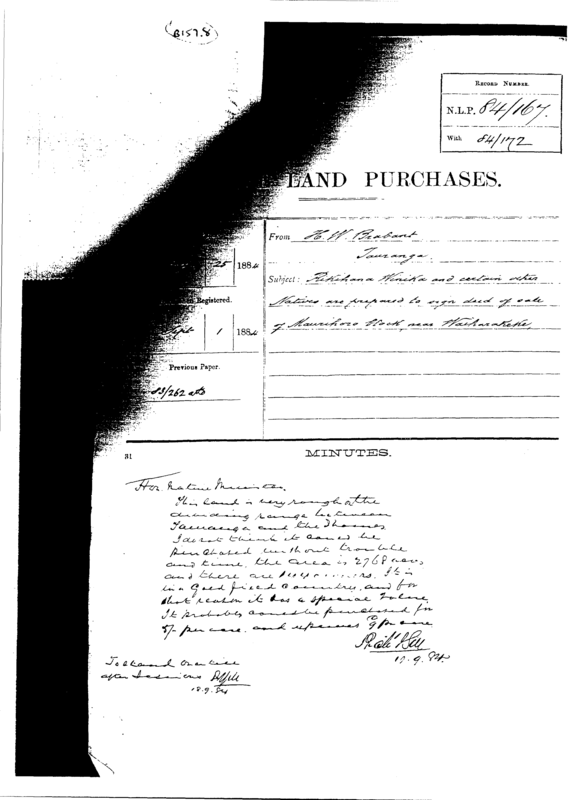 B157.8
RECORD NUMBER.
N.L.P. 84/167.
With 84/172
LAND PURCHASES.
From H. W. Brabant
Tauranga
25 1884
Subject: Winika and certain other
Registered.
Natives are prepared to sign deed of sale
Sept 1 1884
of block, near
Previous Paper.
83/262
31
MINUTES.
Hon. Native Minister.
This land is very rough on the
dividing range between
Tauranga and the Thames
I do not think it could be
purchased without trouble
and time, the area is 2768 acres
and there are owners. It is
in a Gold field Country, and for
that reason it has a special value.
It probably could be purchased for
5/- per acre. and expenses 9 per acre
17.9.84.
To stand over till
after Session
18.9.84